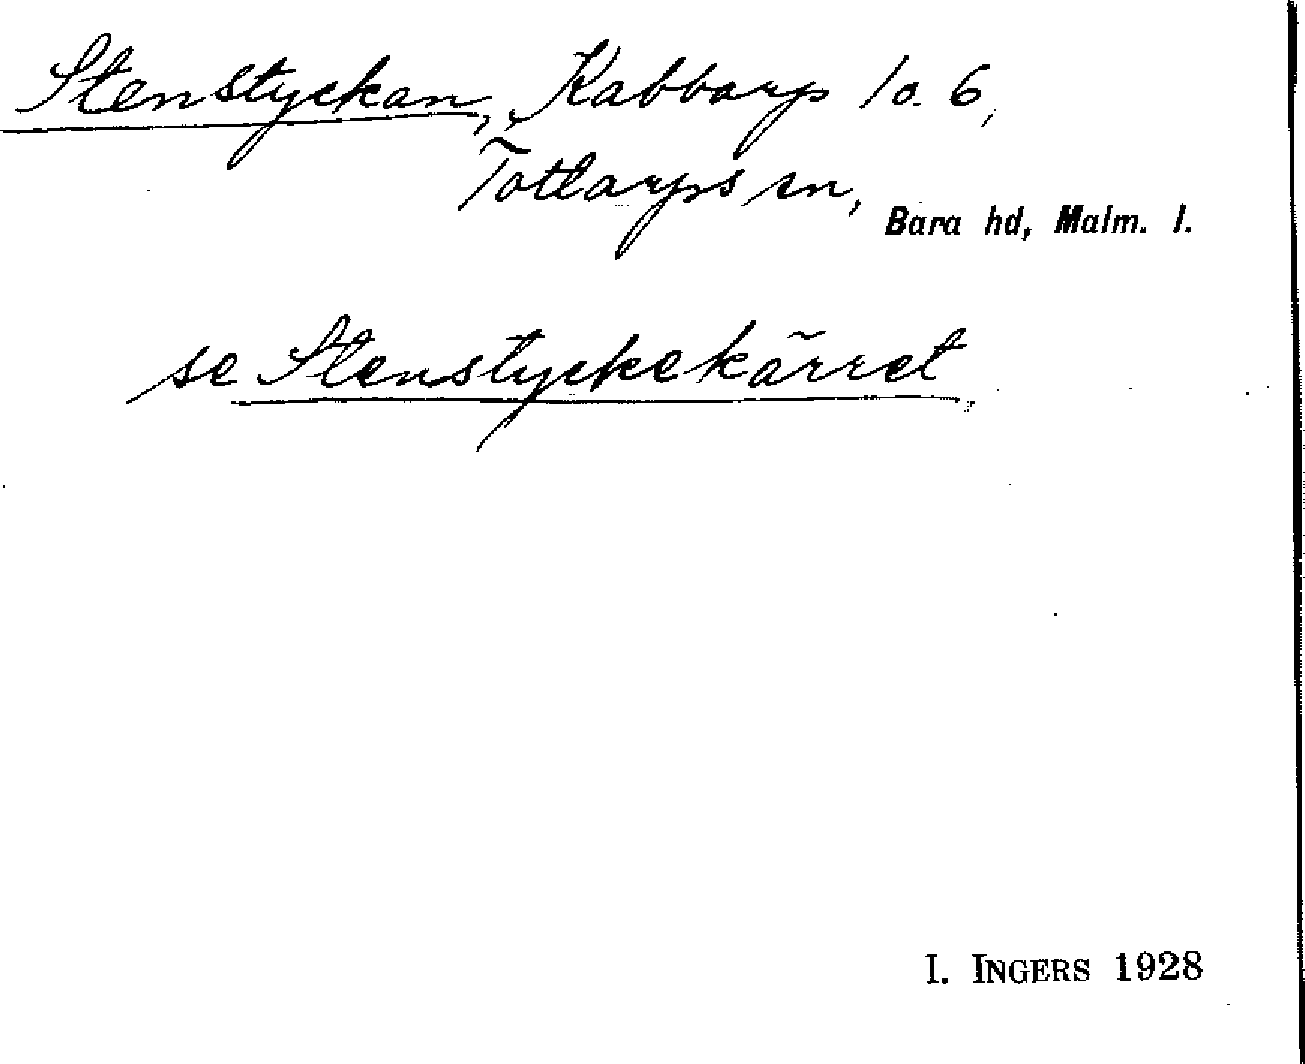 Stenstyckan, Kabbarp 10. 6,
Tottarps sn, Bara hd, Malm. l.
se Stenstyckekärret
I. INGERS 1928